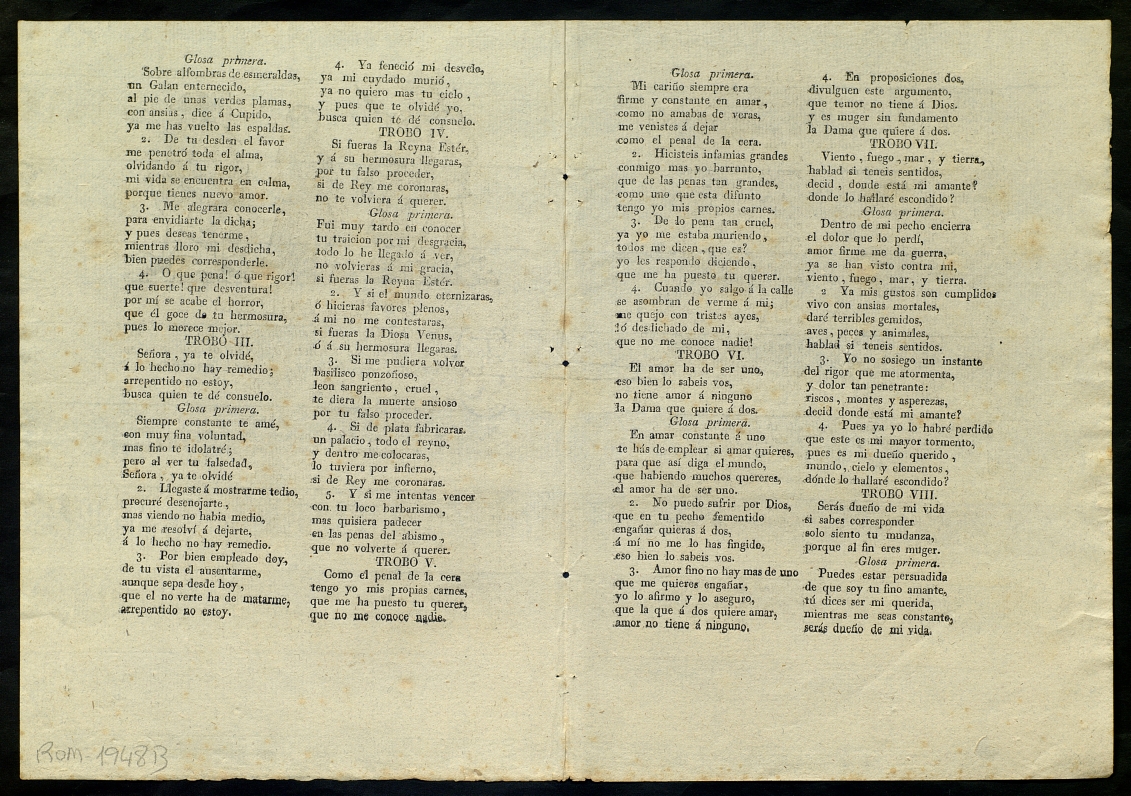 Glosa primera.
Sobre alfombras de esmeraldas,
un Galan enternecido,
al pie de unas verdes plamas,
con ansias, dice á Cupido,
ya me has vuelto las espaldas.
2. De tu desden el favor
me penetró toda el alma,
olvidando á tu rigor,
mi vida se encuentra en calma,
porque tienes nuevo amor.
3. Me alegrara conocerle,
para envidiarte la dicha;
y pues deseas tenerme,
mientras lloro mi desdicha,
bien puedes corresponderle.
4. O que pena! ó que rigor!
que suerte! que desventura!
por mí se acabe el horror,
que él goce de tu hermosura,
pues lo merece mejor.
TROBO III.
Señora, ya te olvidé,
á lo hecho no hay remedio;
arrepentido no estoy,
busca quien te dé consuelo.
Glosa primera.
Siempre constante te amé,
con muy fina voluntad,
mas fino te idolatré;
pero al ver tu falsedad,
Señora, ya te olvidé
2. Llegaste á mostrarme tedio,
procuré desenojarte,
mas viendo no habia medio,
ya me resolví á dejarte,
á lo hecho no hay remedio.
3. Por bien empleado doy,
de tu vista el ausentarme,
aunque sepa desde hoy,
que el no verte ha de matarme,
arrepentido no estoy.
4. Ya feneció mi desvelo,
ya mi cuydado murió,
ya no quiero mas tu cielo,
y pues que te olvidé yo,
busca quien te dé consuelo.
TROBO IV.
Si fueras la Reyna Estér,
y á su hermosura llegaras,
por tu falso proceder,
si de Rey me coronaras,
no te volviera á querer.
Glosa primera.
Fui muy tardo en conocer
tu traicion por mi desgracia,
todo lo he llegado á ver,
no volvieras á mi gracia,
si fueras la Reyna Estér.
2. Y si el mundo eternizaras,
ó hicieras favores plenos,
á mi no me contestaras,
si fueras la Diosa Venus,
ó á su hermosura llegaras.
3. Si me pudiera volvor
basilisco ponzoñoso,
leon sangriento, cruel,
te diera la muerte ansioso
por tu falso proceder.
4. Si de plata fabricaras
un palacio, todo el reyno,
y dentro me colocaras,
lo tuviera por infierno,
si de Rey me coronaras.
5. Y si me intentas vencer
con tu loco barbarismo,
mas quisiera padecer
en las penas del abismo,
que no volverte á querer.
TROBO V.
Como el penal de la cera
tengo yo mis propias carnes,
que me ha puesto tu querer,
que no me conoce nadie.
Glosa primera.
Mi cariño siempre era
firme y constante en amar,
como no amabas de veras,
me venistes á dejar
como el penal de la cera.
2. Hicisteis infamias grandes
conmigo mas yo barrunto,
que de las penas tan grandes,
como uno que esta difunto
tengo yo mis propios carnes.
3. De lo pena tan cruel,
ya yo me estaba muriendo,
todos me dicen, que es?
yo les respondo diciendo,
que me ha puesto tu querer.
4. Cuando yo salgo á la calle
se asombran de verme á mi;
me quejo con tristes ayes,
ló desdichado de mi,
que no me conoce nadie!
TROBO VI.
El amor ha de ser uno,
eso bien lo sabeis vos,
no tiene amor á ninguno
la Dama que quiere á dos.
Glosa primera.
En amar constante á uno
te hás de emplear si amar quieres,
para que así diga el mundo,
que habiendo muchos quereres,
el amor ha de ser uno.
2. No puedo sufrir por Dios,
que en tu pecho fementido
engañar quieras á dos,
á mí no me lo has fingido,
eso bien lo sabeis vos.
3. Amor fino no hay mas de uno
que me quieres engañar,
yo lo afirmo y lo aseguro,
que la que á dos quiere amar,
amor no tiene á ninguno.
4. En proposiciones dos,
divulguen este argumento,
que temor no tiene á Dios.
y es muger sin fundamento
la Dama que quiere á dos.
TROBO VII.
Viento, fuego, mar, y tierra,
hablad si teneis sentidos,
decid, donde está mi amante?
donde lo hallaré escondido?
Glosa primera.
Dentro de mi pecho encierra
el dolor que lo perdí,
amor firme me da guerra,
ya se han visto contra mi,
viento, fuego, mar, y tierra.
2 Ya mis gustos son cumplidos
vivo con ansias mortales,
daré terribles gemidos,
aves, peces y animales,
hablad si teneis sentidos.
3. Yo no sosiego un instante
del rigor que me atormenta,
y dolor tan penetrante:
riscos, montes y asperezas,
decid donde está mi amante?
4. Pues ya yo lo habré perdido
que este es mi mayor tormento,
pues es mi dueño querido,
mundo, cielo y elementos,
dónde lo hallaré escondido?
TROBO VIII.
Serás dueño de mi vida
si sabes corresponder
solo siento tu mudanza,
porque al fin eres muger.
Glosa primera.
Puedes estar persuadida
de que soy tu fino amante,
tú dices ser mi querida,
mientras me seas constante,
serás dueño de mi vida.
ROM-1948B